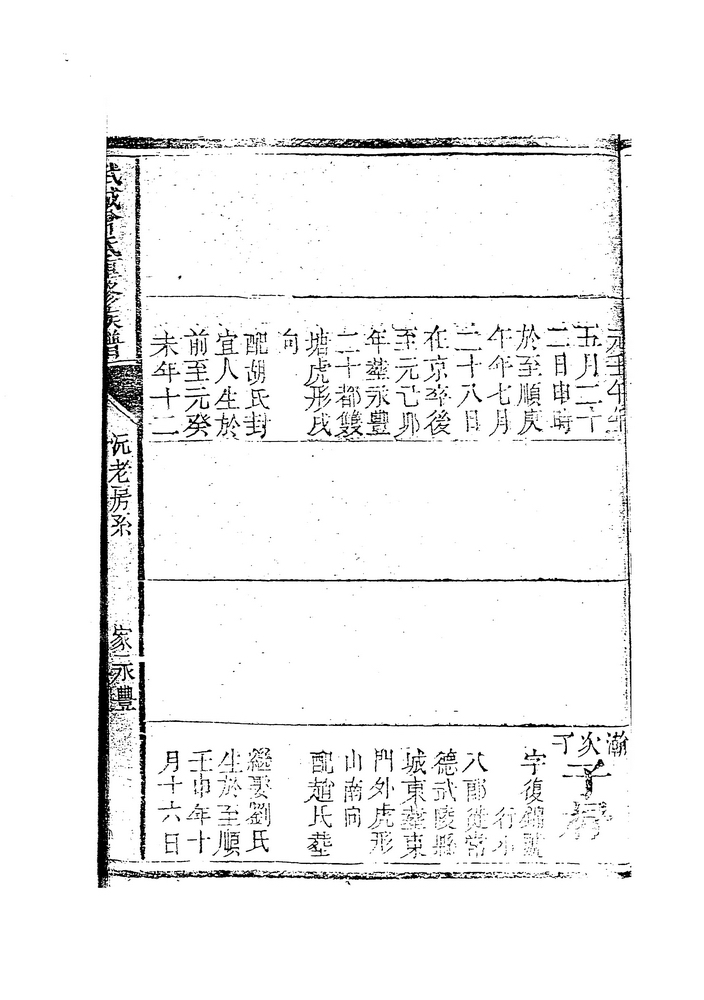 五月二十
二日申時
於至順庚
午年七月
二十八日
在京卒後
至元己卯
年塟永豐
二十都雙
塘虎形戌
向
配胡氏封
宜人生於
前至元癸
未年十二
瀚次子
子
字復錦
行小
八郎徙常
德武陵縣
城東塟東
門外虎形
山南向
配趙氏塟
繼娶劉氏
生於至順
壬申年十
月十六日
武城曾氏重修族譜
老房系
永豐